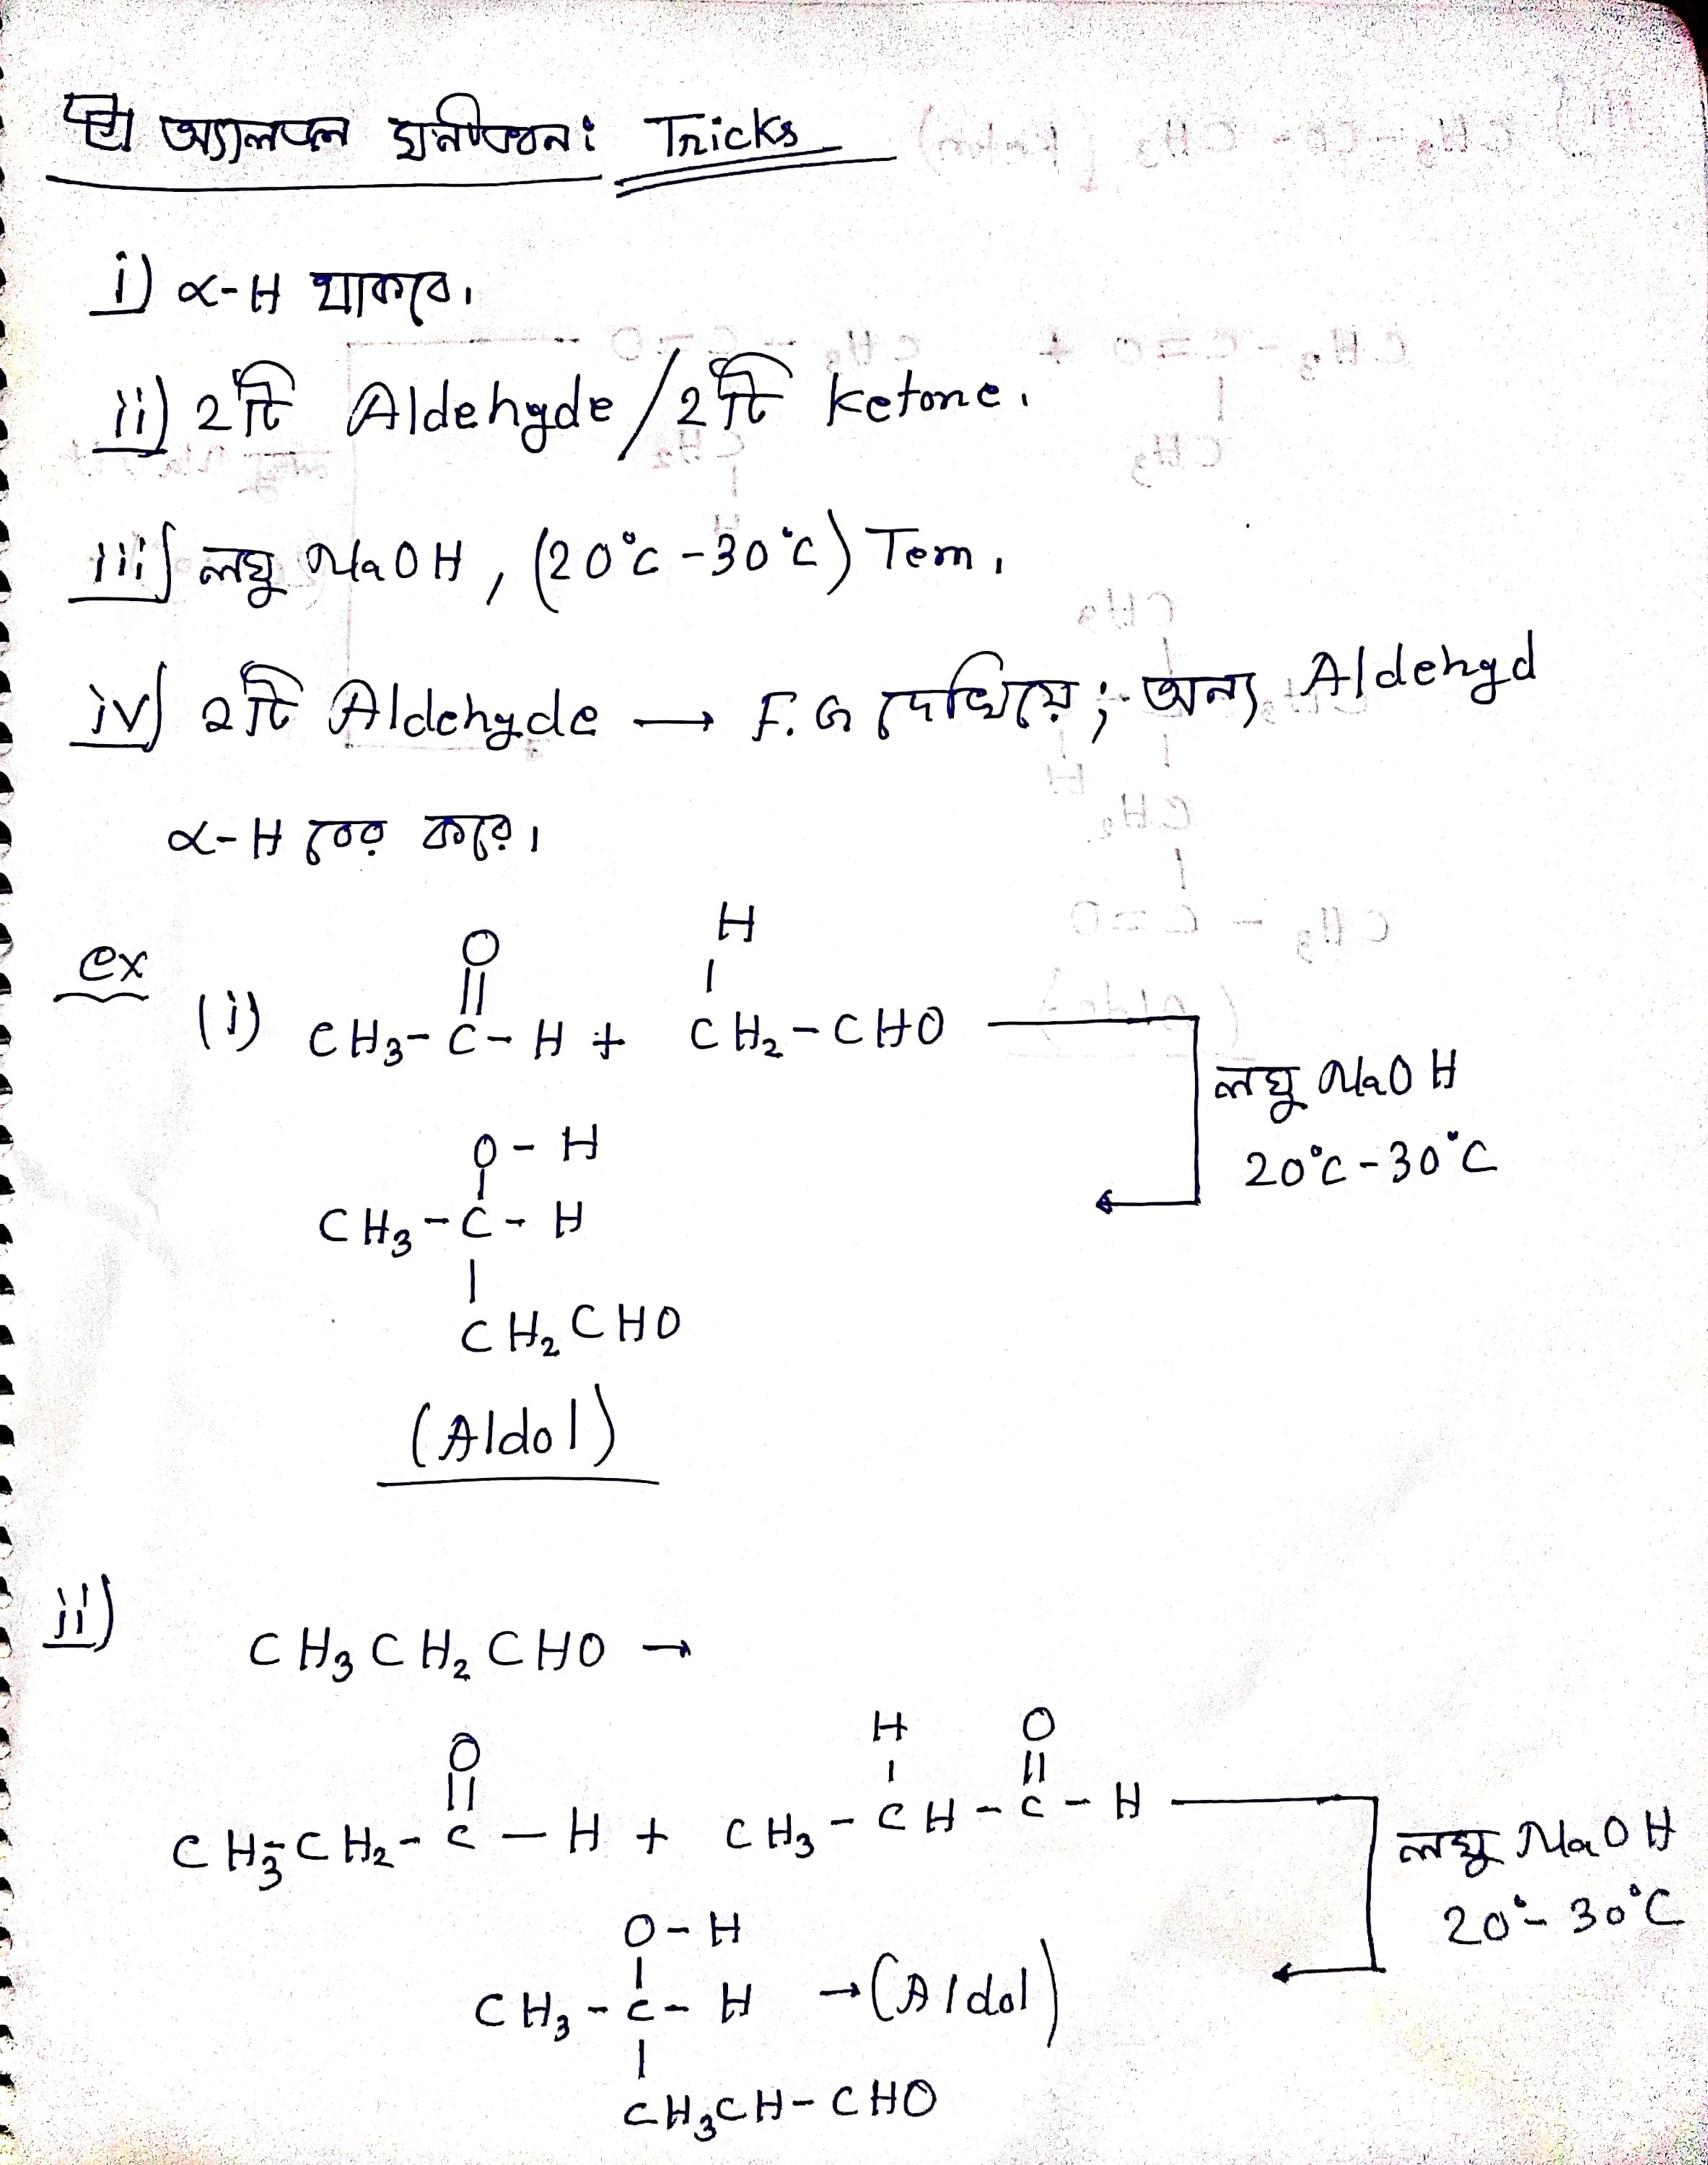 অ্যালডল ঘনীভবন: Tricks
i) α-H থাকবে।
ii) 2টি Aldehyde/2টি ketone.
iii) লঘু NaOH, (20°c-30°c) Tem.
iv) 2টি Aldehyde → F.G দেখিয়ে; অন্য Aldehyd
α-H বের করে।
ex
O H
|| |
(i) CH₃-C-H + CH₂-CHO
লঘু NaOH
20°c-30°c
O-H
|
CH₃-C-H
|
CH₂CHO
(Aldol)
ii)
CH₃CH₂CHO →
O H O
|| | ||
CH₃-CH₂-C-H + CH₃-CH-C-H
লঘু NaOH
20°-30°C
O-H
|
CH₃-C-H → (Aldol)
|
CH₃CH-CHO